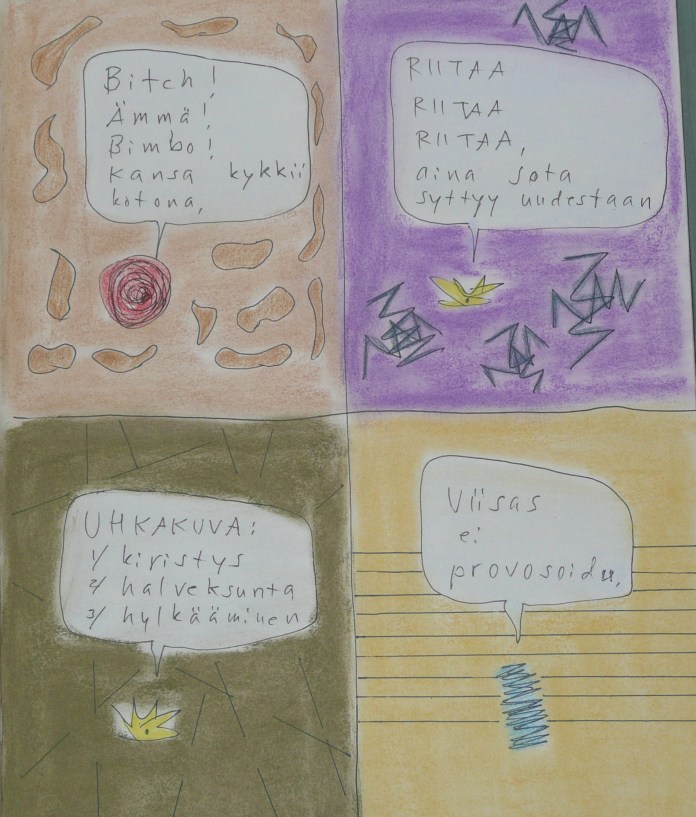 Bitch!
Ämmä!
Bimbo!
Kansa kykkii
kotona,
RIITAA
RIITAA
RIITAA,
aina sota
syttyy uudestaan
UHKAKUVA:
1/ kiristys
2/ halveksunta
3/ hylkääminen
Viisas
ei
provosoidu,